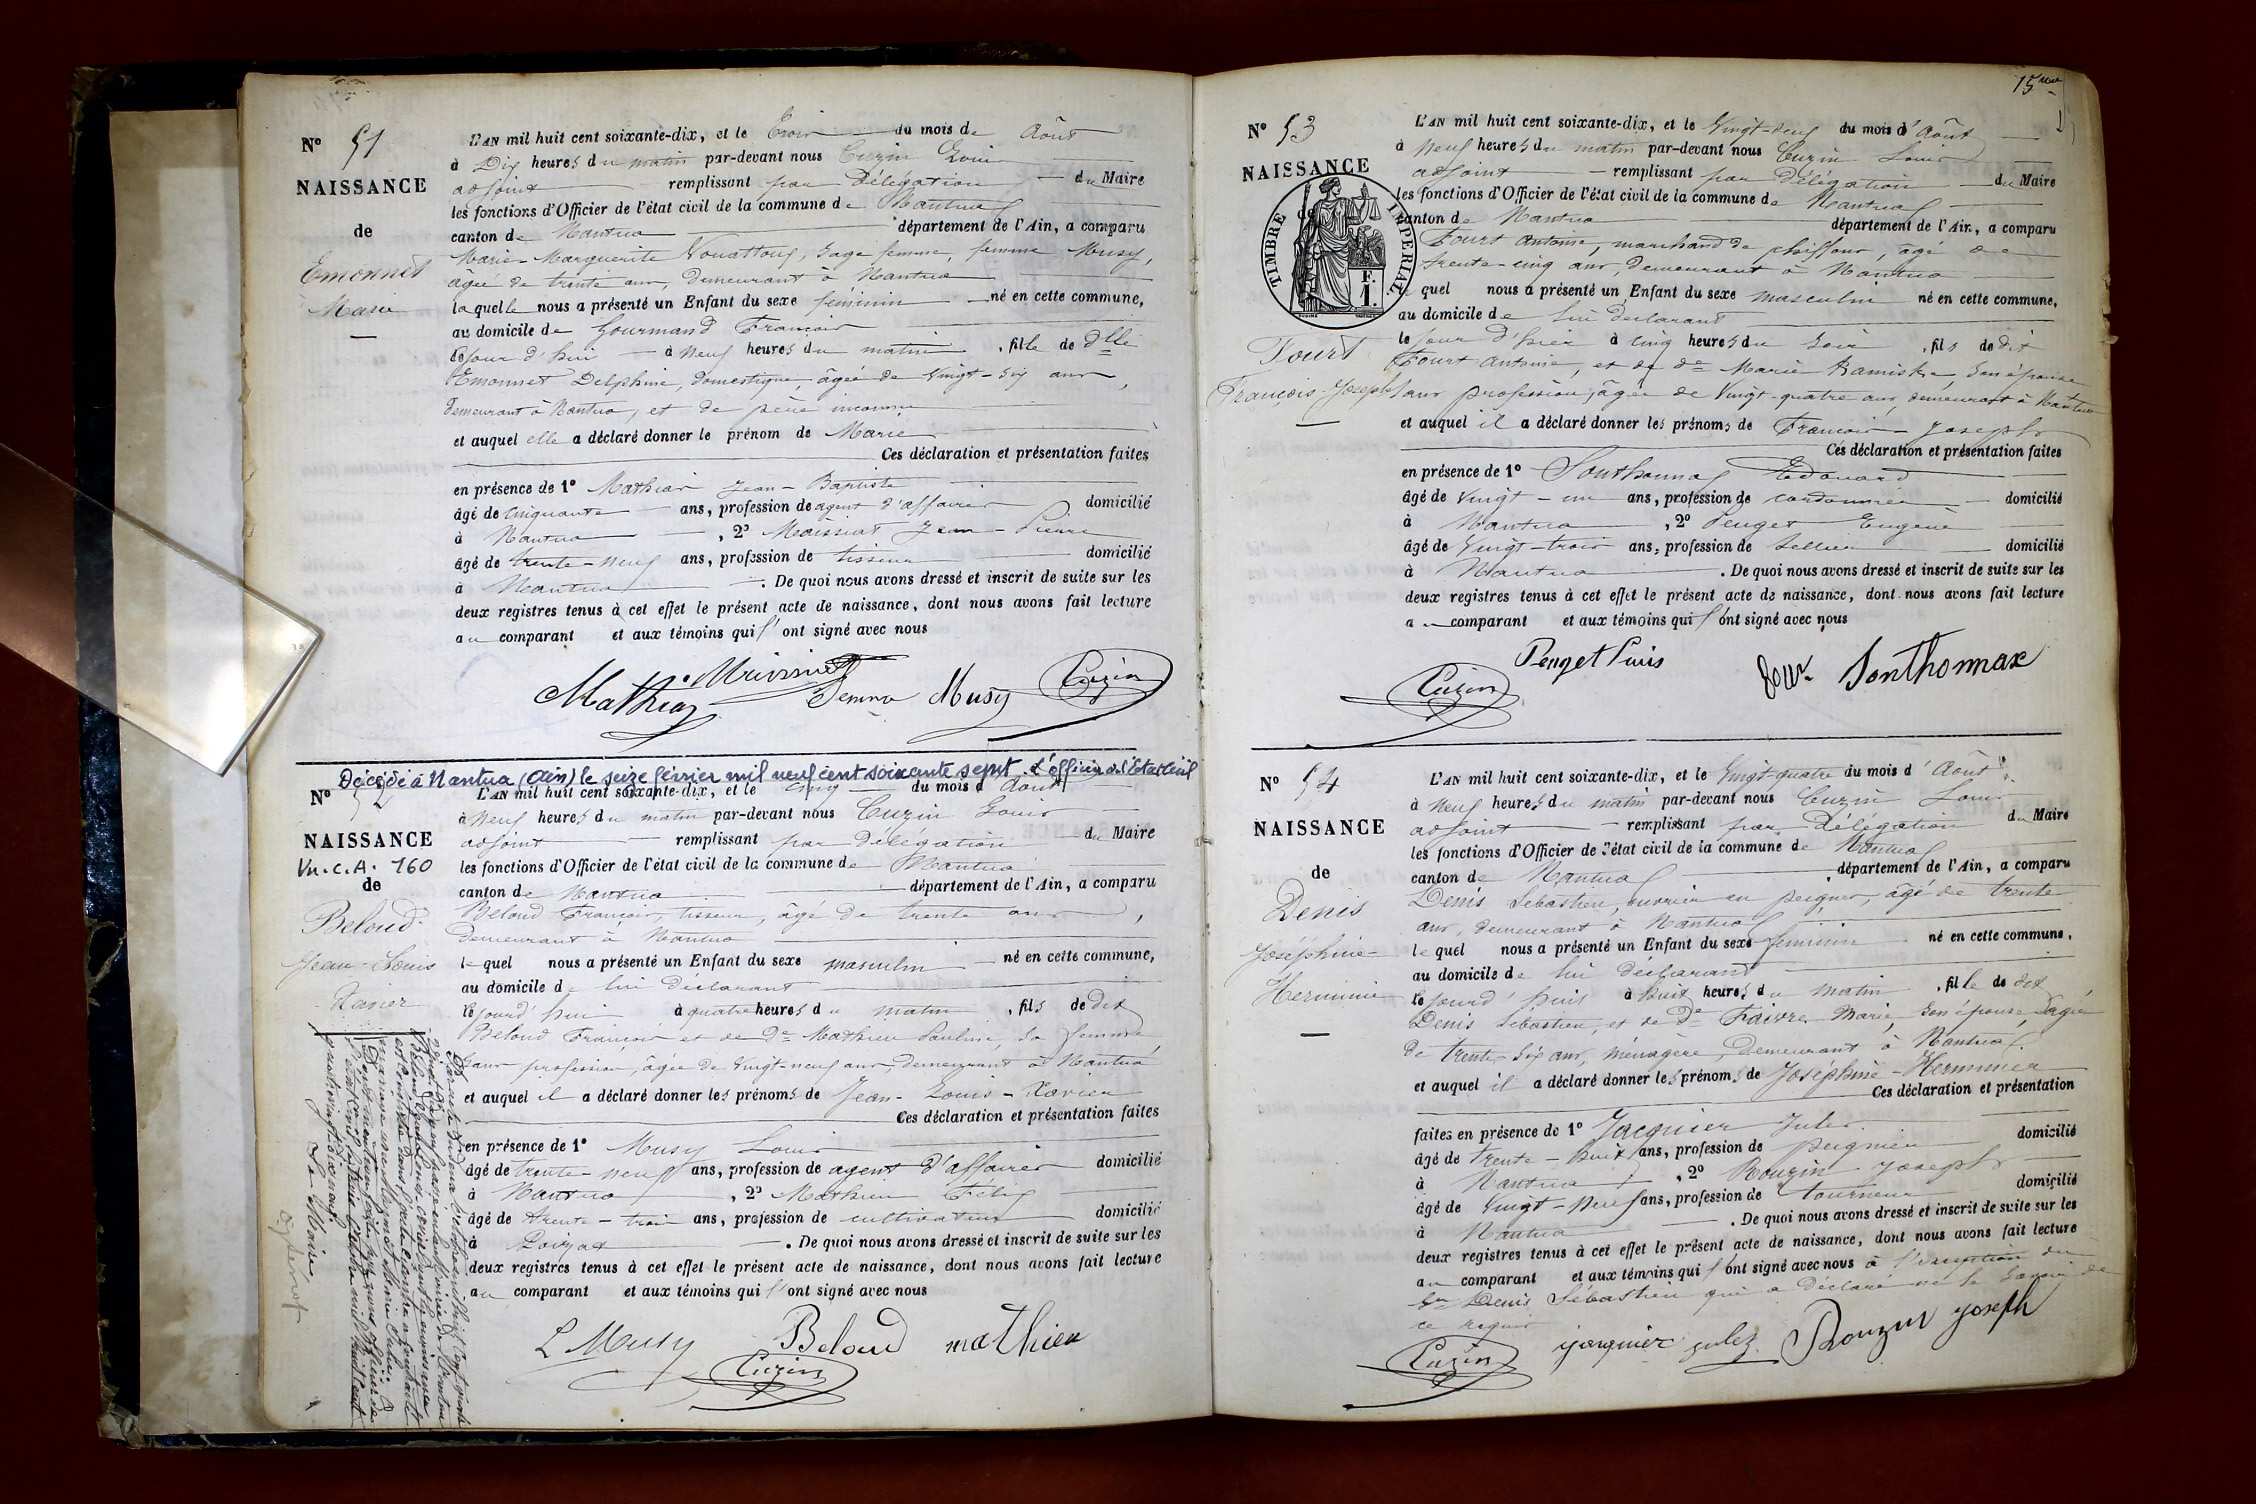 N° 51
NAISSANCE
de
Emonnet
Marie
L'AN mil huit cent soixante-dix, et le Trois du mois de Août
à Dix heures du matin par-devant nous Cuzin Louis
adjoint remplissant par Délégation du Maire
les fonctions d'Officier de l'état civil de la commune de Nantua
canton de Nantua département de l'Ain, a comparu
Marie-Marguerite sage femme, femme Musy,
âgée de trente ans, demeurant à Nantua
laquelle nous a présenté un Enfant du sexe féminin né en cette commune,
au domicile de Gourmand François
le jour d'hui à Neuf heures du matin, fille de dlle
Emonnet Delphine, domestique, âgée de Vingt-six ans,
demeurant à Nantua, et de père inconnu
et auquel elle a déclaré donner le prénom de Marie
Ces déclaration et présentation faites
en présence de 1° Mathian Jean-Baptiste
âgé de cinquante ans, profession de agent d'affaires domicilié
à Nantua, 2° Moissiat Jean-Pierre
âgé de trente-neuf ans, profession de tisseur domicilié
à Nantua. De quoi nous avons dressé et inscrit de suite sur les
deux registres tenus à cet effet le présent acte de naissance, dont nous avons fait lecture
au comparant et aux témoins qui l'ont signé avec nous
Mathian Femme Musy Cuzin
Décédé à Nantua (Ain) le seize février mil neuf cent soixante sept. L'officier de l'Etat Civil
N° 52
NAISSANCE
Vu.C.A. 160
de
Beloud
Jean-Louis
Xavier
L'AN mil huit cent soixante-dix, et le cinq du mois d'Août
à Neuf heures du matin par-devant nous Cuzin Louis
adjoint remplissant par délégation du Maire
les fonctions d'Officier de l'état civil de la commune de Nantua
canton de Nantua département de l'Ain, a comparu
Beloud François, tisseur, âgé de trente ans,
demeurant à Nantua
lequel nous a présenté un Enfant du sexe masculin né en cette commune,
au domicile de lui déclarant
le jourd'hui à quatre heures du matin, fils de dit
Beloud François et de De Mathieu Pauline, sa femme,
sans profession, âgée de Vingt-neuf ans, demeurant à Nantua
et auquel il a déclaré donner les prénoms de Jean-Louis-Xavier
Ces déclaration et présentation faites
en présence de 1° Musy Louis
âgé de trente-neuf ans, profession de agent d'affaires domicilié
à Nantua, 2° Mathieu Félix
âgé de trente-trois ans, profession de cultivateur domicilié
à Poizat. De quoi nous avons dressé et inscrit de suite sur les
deux registres tenus à cet effet le présent acte de naissance, dont nous avons fait lecture
au comparant et aux témoins qui l'ont signé avec nous
L Musy Beloud mathieu
Cuzin
Le Maire
15
N° 53
NAISSANCE
de
TIMBRE IMPERIAL
F.
1.
Fourt
François-Joseph
L'AN mil huit cent soixante-dix, et le Vingt-deux du mois d'Août
à Neuf heures du matin par-devant nous Cuzin Louis
adjoint remplissant par délégation du Maire
les fonctions d'Officier de l'état civil de la commune de Nantua
canton de Nantua département de l'Ain, a comparu
Fourt Antoine, marchand de chiffons, âgé de
trente-cinq ans, demeurant à Nantua
lequel nous a présenté un Enfant du sexe masculin né en cette commune,
au domicile de lui déclarant
le jour d'hier à cinq heures du soir, fils de dit
Fourt Antoine, et de de Marie son épouse
sans profession, âgée de Vingt-quatre ans, demeurant à Nantua
et auquel il a déclaré donner les prénoms de François-Joseph
Ces déclaration et présentation faites
en présence de 1° Sonthonnax Edouard
âgé de Vingt-un ans, profession de cordonnier domicilié
à Nantua, 2° Penget Eugène
âgé de Vingt-trois ans, profession de sellier domicilié
à Nantua. De quoi nous avons dressé et inscrit de suite sur les
deux registres tenus à cet effet le présent acte de naissance, dont nous avons fait lecture
au comparant et aux témoins qui l'ont signé avec nous
Cuzin Penget Sonthonnax
N° 54
NAISSANCE
de
Denis
Joséphine-
Herminie
L'AN mil huit cent soixante-dix, et le Vingt-quatre du mois d'Août
à Neuf heures du matin par-devant nous Cuzin Louis
adjoint remplissant par Délégation du Maire
les fonctions d'Officier de l'état civil de la commune de Nantua
canton de Nantua département de l'Ain, a comparu
Denis Sébastien, ouvrier en peignes, âgé de trente
ans, demeurant à Nantua
lequel nous a présenté un Enfant du sexe féminin né en cette commune,
au domicile de lui déclarant
le jourd'hui à huit heures du matin, fille de dit
Denis Sébastien, et de De Faivre Marie, son épouse, âgée
de trente-six ans, ménagère, demeurant à Nantua
et auquel il a déclaré donner les prénoms de Joséphine-Herminie
Ces déclaration et présentation
faites en présence de 1° Jacquier Jules
âgé de trente-huit ans, profession de peignier domicilié
à Nantua, 2° Rouzin Joseph
âgé de Vingt-Neuf ans, profession de tourneur domicilié
à Nantua. De quoi nous avons dressé et inscrit de suite sur les
deux registres tenus à cet effet le présent acte de naissance, dont nous avons fait lecture
au comparant et aux témoins qui l'ont signé avec nous à l'exception du
Sr Denis Sébastien qui a déclaré ne le savoir de
ce requis
Cuzin jaquier jules Rouzin joseph